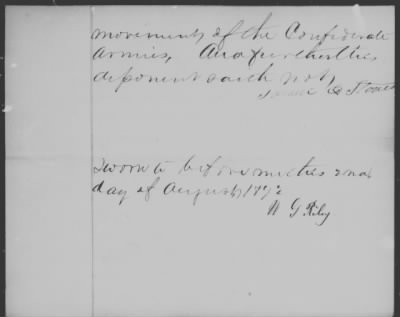 movements of the Confederate
Armies, And further this
deponent saith not
Stones
Sworn to before me this 2nd
day of August 1872
W G Riley